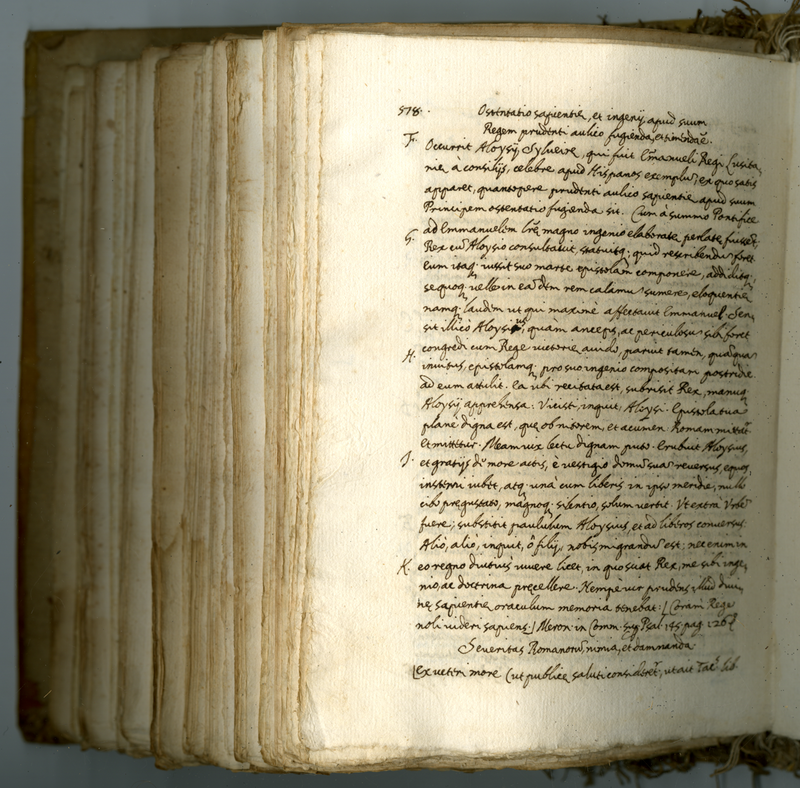 578. Ostentatio sapientię, et ingenij apud suum
Regem prudenti aulico fugienda, et timenda.
F. Occurrit Aloysij Sylueirę, qui fuit Emanueli Regi Lusita-
nię à consilijs, celebre apud Hispanos exemplũ; ex quo satis
apparet, quantopere prudenti aulico sapientię apud suum
Principem ostentatio fugienda sit. Cum à summo Pontifice
ad Emmanuelem lrę magno ingenio elaboratę perlatę fuissẽt,
G. Rex cũ Aloysio consultauit, statuitq; quid rescribendũ foret
eum itaq; iussit suo marte epistolam componere, addiditq;
se quoq; uelle in ea dẽm rem calamũ sumere, eloquentię
namq; laudem ut qui maximè affectauit Emmanuel. Sen-
sit illicò Aloysius, quàm anceps, ac periculosũ sibi foret
congredi cum Rege uictorię auido, paruit tamen, quãquã
H. inuitus, epistolamq; pro suo ingenio compositam postridie
ad eum attulit. Ea ubi recitata est, subrisit Rex, manuq;
Aloysij apprehensa: Vicisti, inquit, Aloysi. Epistola tua
planè digna est, quę ob nitorem, et acumen Romam mittat.
et mittitur. Meam uix lectu dignam puto. Erubuit Aloysius,
J. et gratijs de more actis, è uestigio domũ suã reuersus, equos
insterni iubet, atq; unà cum liberis in ipso meridie, nullo
cibo pręgustato, magnoq; silentio, solum uertit. Vt extrà Vrbẽ
fuere; substitit paululum Aloysius, et ad liberos conuersus:
Aliò, aliò, inquit, ô filij, nobis migrandũ est: nec enim in
K. eo regno diutiùs uiuere licet, in quo sciat Rex, me sibi inge-
nio, ac doctrina pręcellere. Nempè uir prudens illud diui-
nę sapientię oraculum memoria tenebat: / Coram Rege
noli uideri sapiens. / Meron. in Comm. sup. Psal. 145. pag. 126.
Seueritas Romanorũ nimia, et damnanda.
[Ex ueteri more (ut publicę saluti consideret, ut ait Tac. lib.